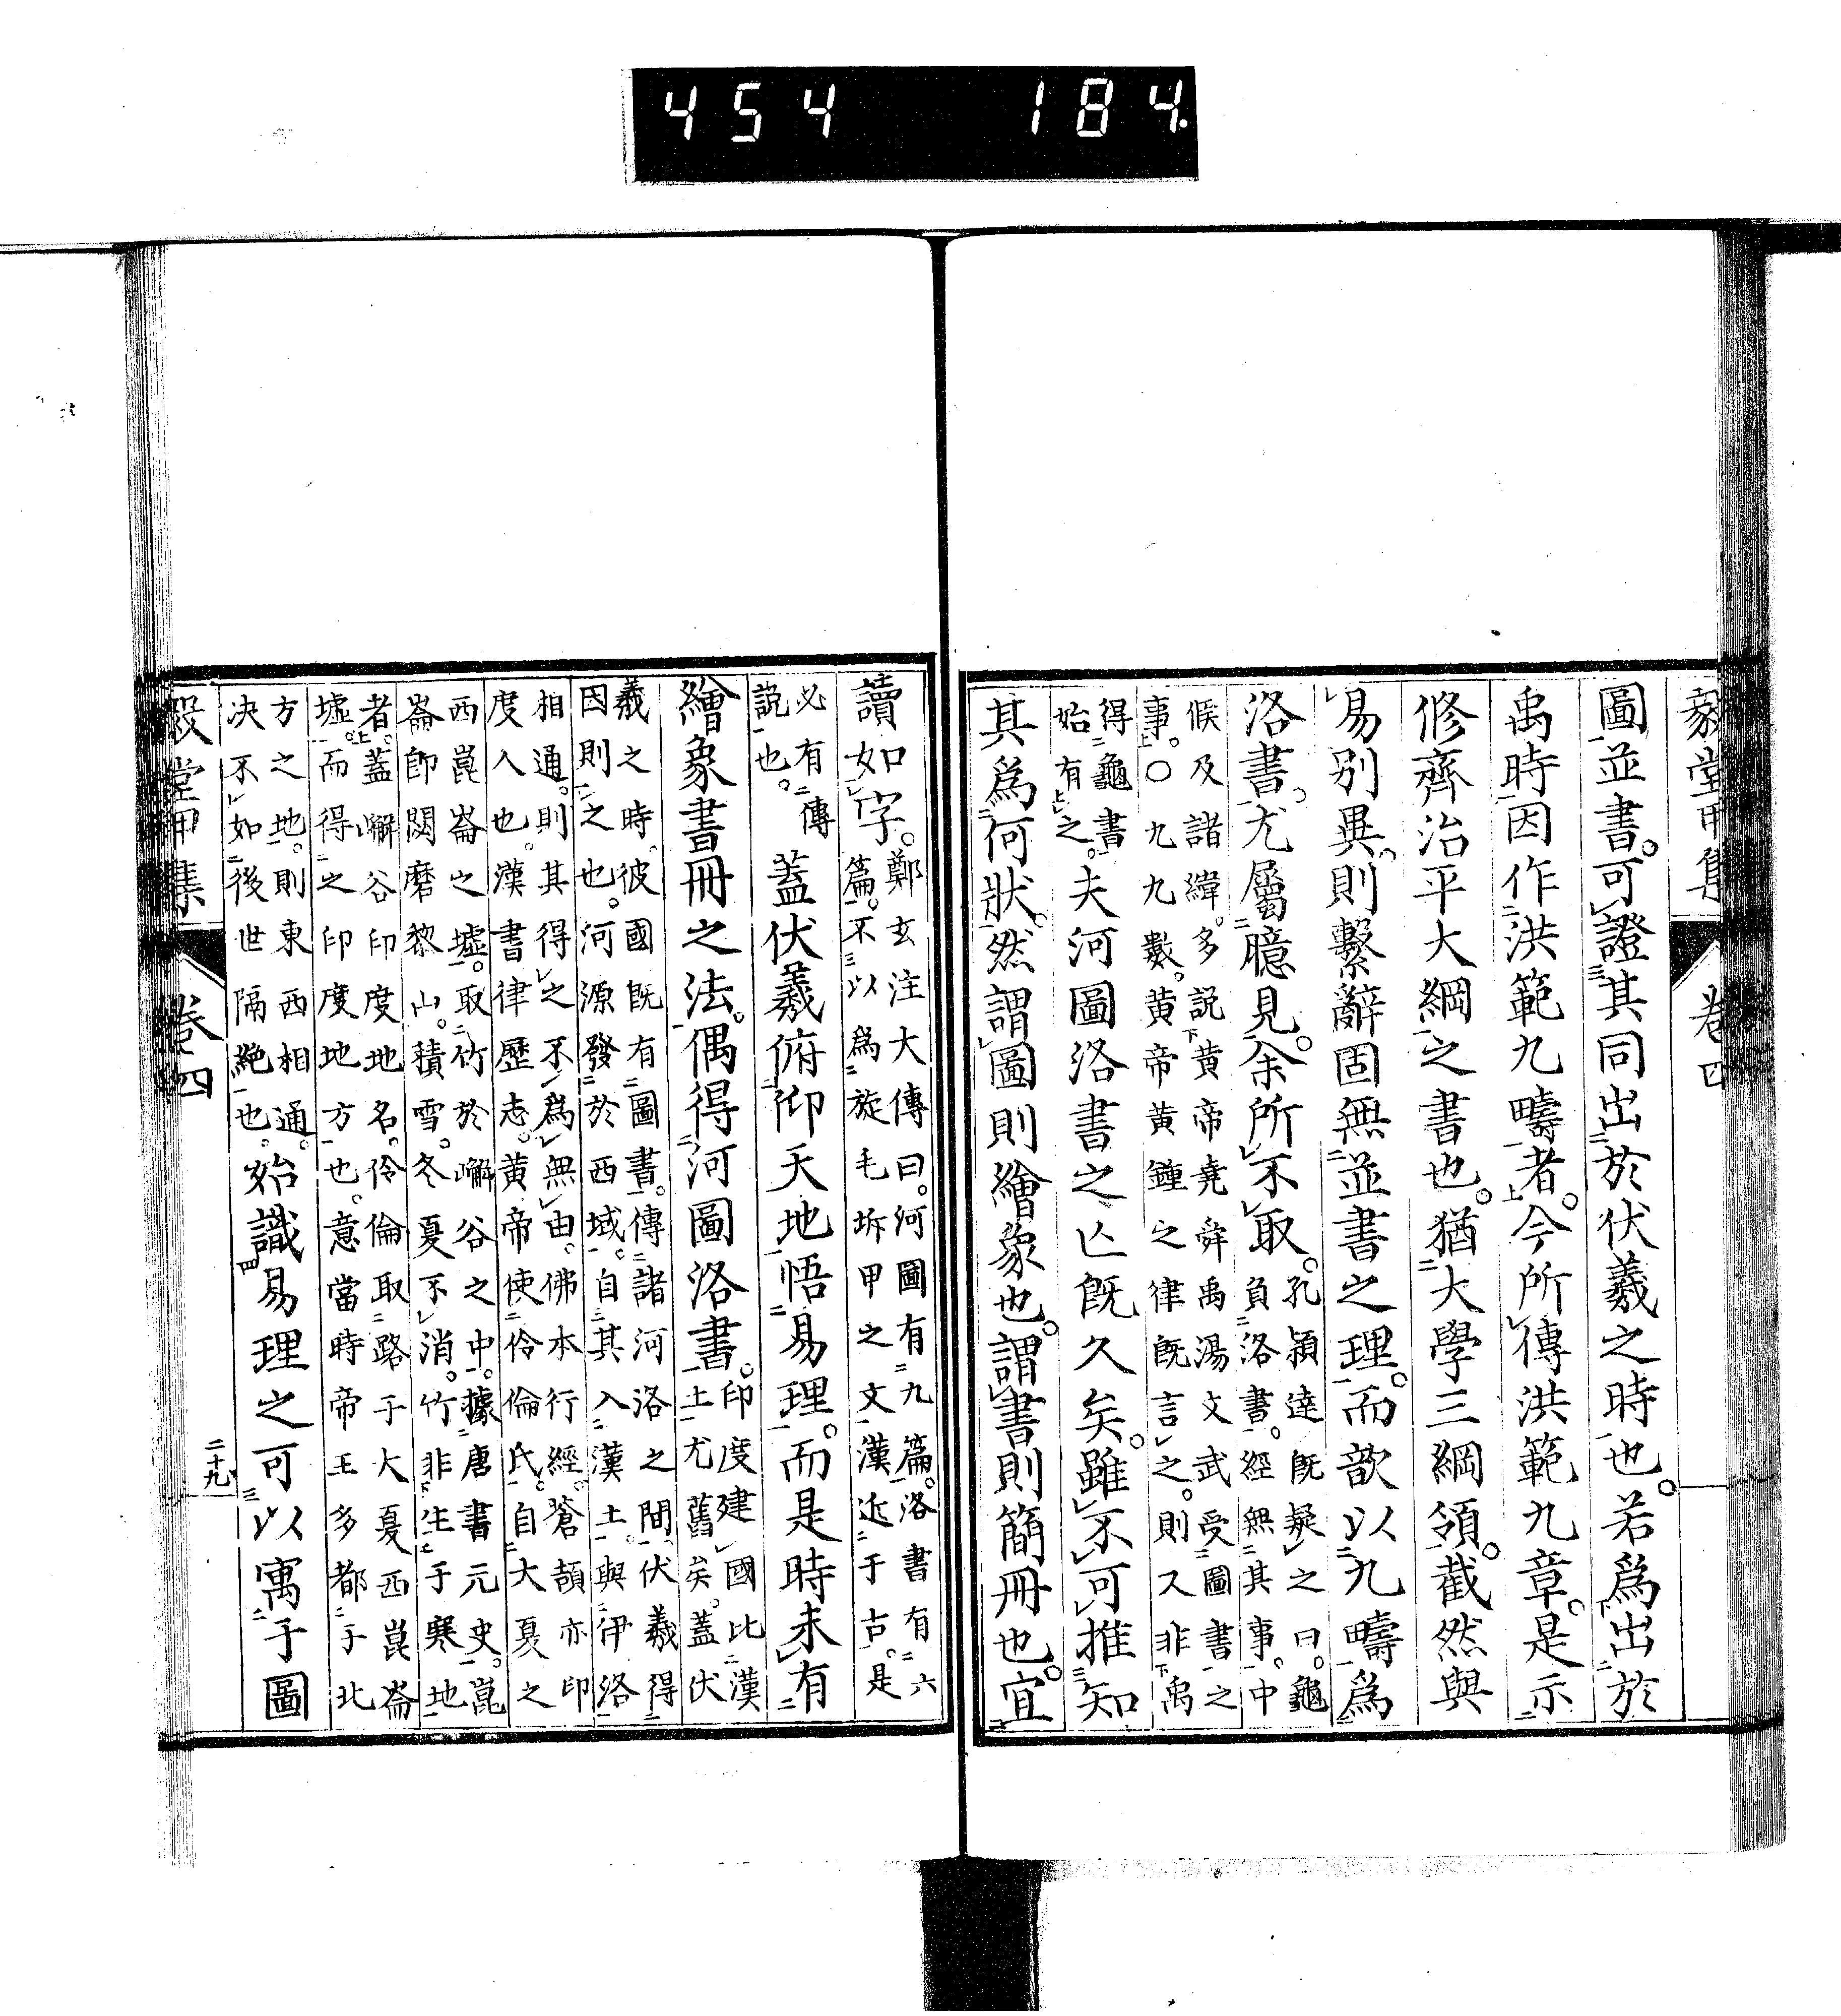 454 184.
毅堂甲集 卷四
圖並書。可證其同出於伏羲之時也。若爲出於
禹時因作洪範九疇者。今所傳洪範九章。是示
修齊治平大綱之書也。猶大學三綱領。截然與
易別異。則繫辭固無並書之理。而歆以九疇爲
洛書。尤屬臆見。余所不取。孔穎達既疑之曰。龜
負洛書。經無其事。中
候及諸緯。多説黃帝堯舜禹湯文武受圖書之
事。〇九九數。黃帝黃鍾之律既言之。則又非禹
得龜書
始有之。夫河圖洛書之亡既久矣。雖不可推知
其爲何狀。然謂圖則繪象也。謂書則簡冊也。宜
讀如字。鄭玄注大傳曰。河圖有九篇。洛書有六
篇。不以爲旋毛坼甲之文。漢近于古。是
必有傳
説也。蓋伏羲俯仰天地悟易理。而是時未有
繪象書冊之法。偶得河圖洛書。印度建國比漢
土尤舊矣。蓋伏
羲之時。彼國既有圖書。傳諸河洛之間。伏羲得
因則之也。河源發於西域。自其入漢土。與伊洛
相通。則其得之不爲無由。佛本行經。蒼頡亦印
度人也。漢書律歷志。黃帝使伶倫氏。自大夏之
西崑崙之墟。取竹於嶰谷之中。據唐書元史。崑
崙卽閟磨黎山。積雪。冬夏不消。竹非生于寒地
者。蓋嶰谷印度地名。伶倫取路于大夏西崑崙
墟。而得之印度地方也。意當時帝王多都于北
方之地。則東西相通。
決不如後世隔絶也。始識易理之可以寓于圖
毅堂甲集 卷四 二十九